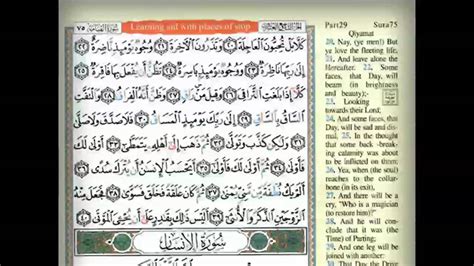 ٧٥
Learning aid with places of stop
Part29 Sura75
كَلَّا بَلْ تُحِبُّونَ ٱلْعَاجِلَةَ ٢٠ وَتَذَرُونَ ٱلْآخِرَةَ ٢١ وُجُوهٌ يَوْمَئِذٍ نَّاضِرَةٌ ٢٢
إِلَىٰ رَبِّهَا نَاظِرَةٌ ٢٣ وَوُجُوهٌ يَوْمَئِذٍۭ بَاسِرَةٌ ٢٤ تَظُنُّ أَن يُفْعَلَ بِهَا فَاقِرَةٌ
٢٥ كَلَّآ إِذَا بَلَغَتِ ٱلتَّرَاقِىَ ٢٦ وَقِيلَ مَنْ رَاقٍ ٢٧ وَظَنَّ أَنَّهُ ٱلْفِرَاقُ ٢٨ وَٱلْتَفَّتِ
ٱلسَّاقُ بِٱلسَّاقِ ٢٩ إِلَىٰ رَبِّكَ يَوْمَئِذٍ ٱلْمَسَاقُ ٣٠ فَلَا صَدَّقَ وَلَا صَلَّىٰ
٣١ وَلَٰكِن كَذَّبَ وَتَوَلَّىٰ ٣٢ ثُمَّ ذَهَبَ إِلَىٰٓ أَهْلِهِۦ يَتَمَطَّىٰٓ ٣٣ أَوْلَىٰ لَكَ
فَأَوْلَىٰ ٣٤ ثُمَّ أَوْلَىٰ لَكَ فَأَوْلَىٰٓ ٣٥ أَيَحْسَبُ ٱلْإِنسَٰنُ أَن يُتْرَكَ سُدًى ٣٦
أَلَمْ يَكُ نُطْفَةً مِّن مَّنِىٍّ يُمْنَىٰ ٣٧ ثُمَّ كَانَ عَلَقَةً فَخَلَقَ فَسَوَّىٰ ٣٨ فَجَعَلَ مِنْهُ
ٱلزَّوْجَيْنِ ٱلذَّكَرَ وَٱلْأُنثَىٰٓ ٣٩ أَلَيْسَ ذَٰلِكَ بِقَٰدِرٍ عَلَىٰٓ أَن يُحْۦِىَ ٱلْمَوْتَىٰ ٤٠
سُورَةُ الإِنسَانِ
Qiyamat
20. Nay, (ye men!) But
ye love the fleeting life,
21. And leave alone the
Hereafter. 22. Some
faces, that Day, will
beam (in brightness
and beauty);-
23. Looking
towards their Lord;
24. And some faces,
that Day, will be sad and dis-
mal, 25. In the thought
that some back-break-
ing calamity was about
to be inflicted on them;
26. Yea, when (the soul)
reaches to the collar-
bone (in its exit),
27. And there will be a
cry, "Who is a magician
(to restore him)?"
28. And he will conclude
that it was (the
Time) of Parting;
29. And one leg will be
joined with another:
30. That Day the Drive